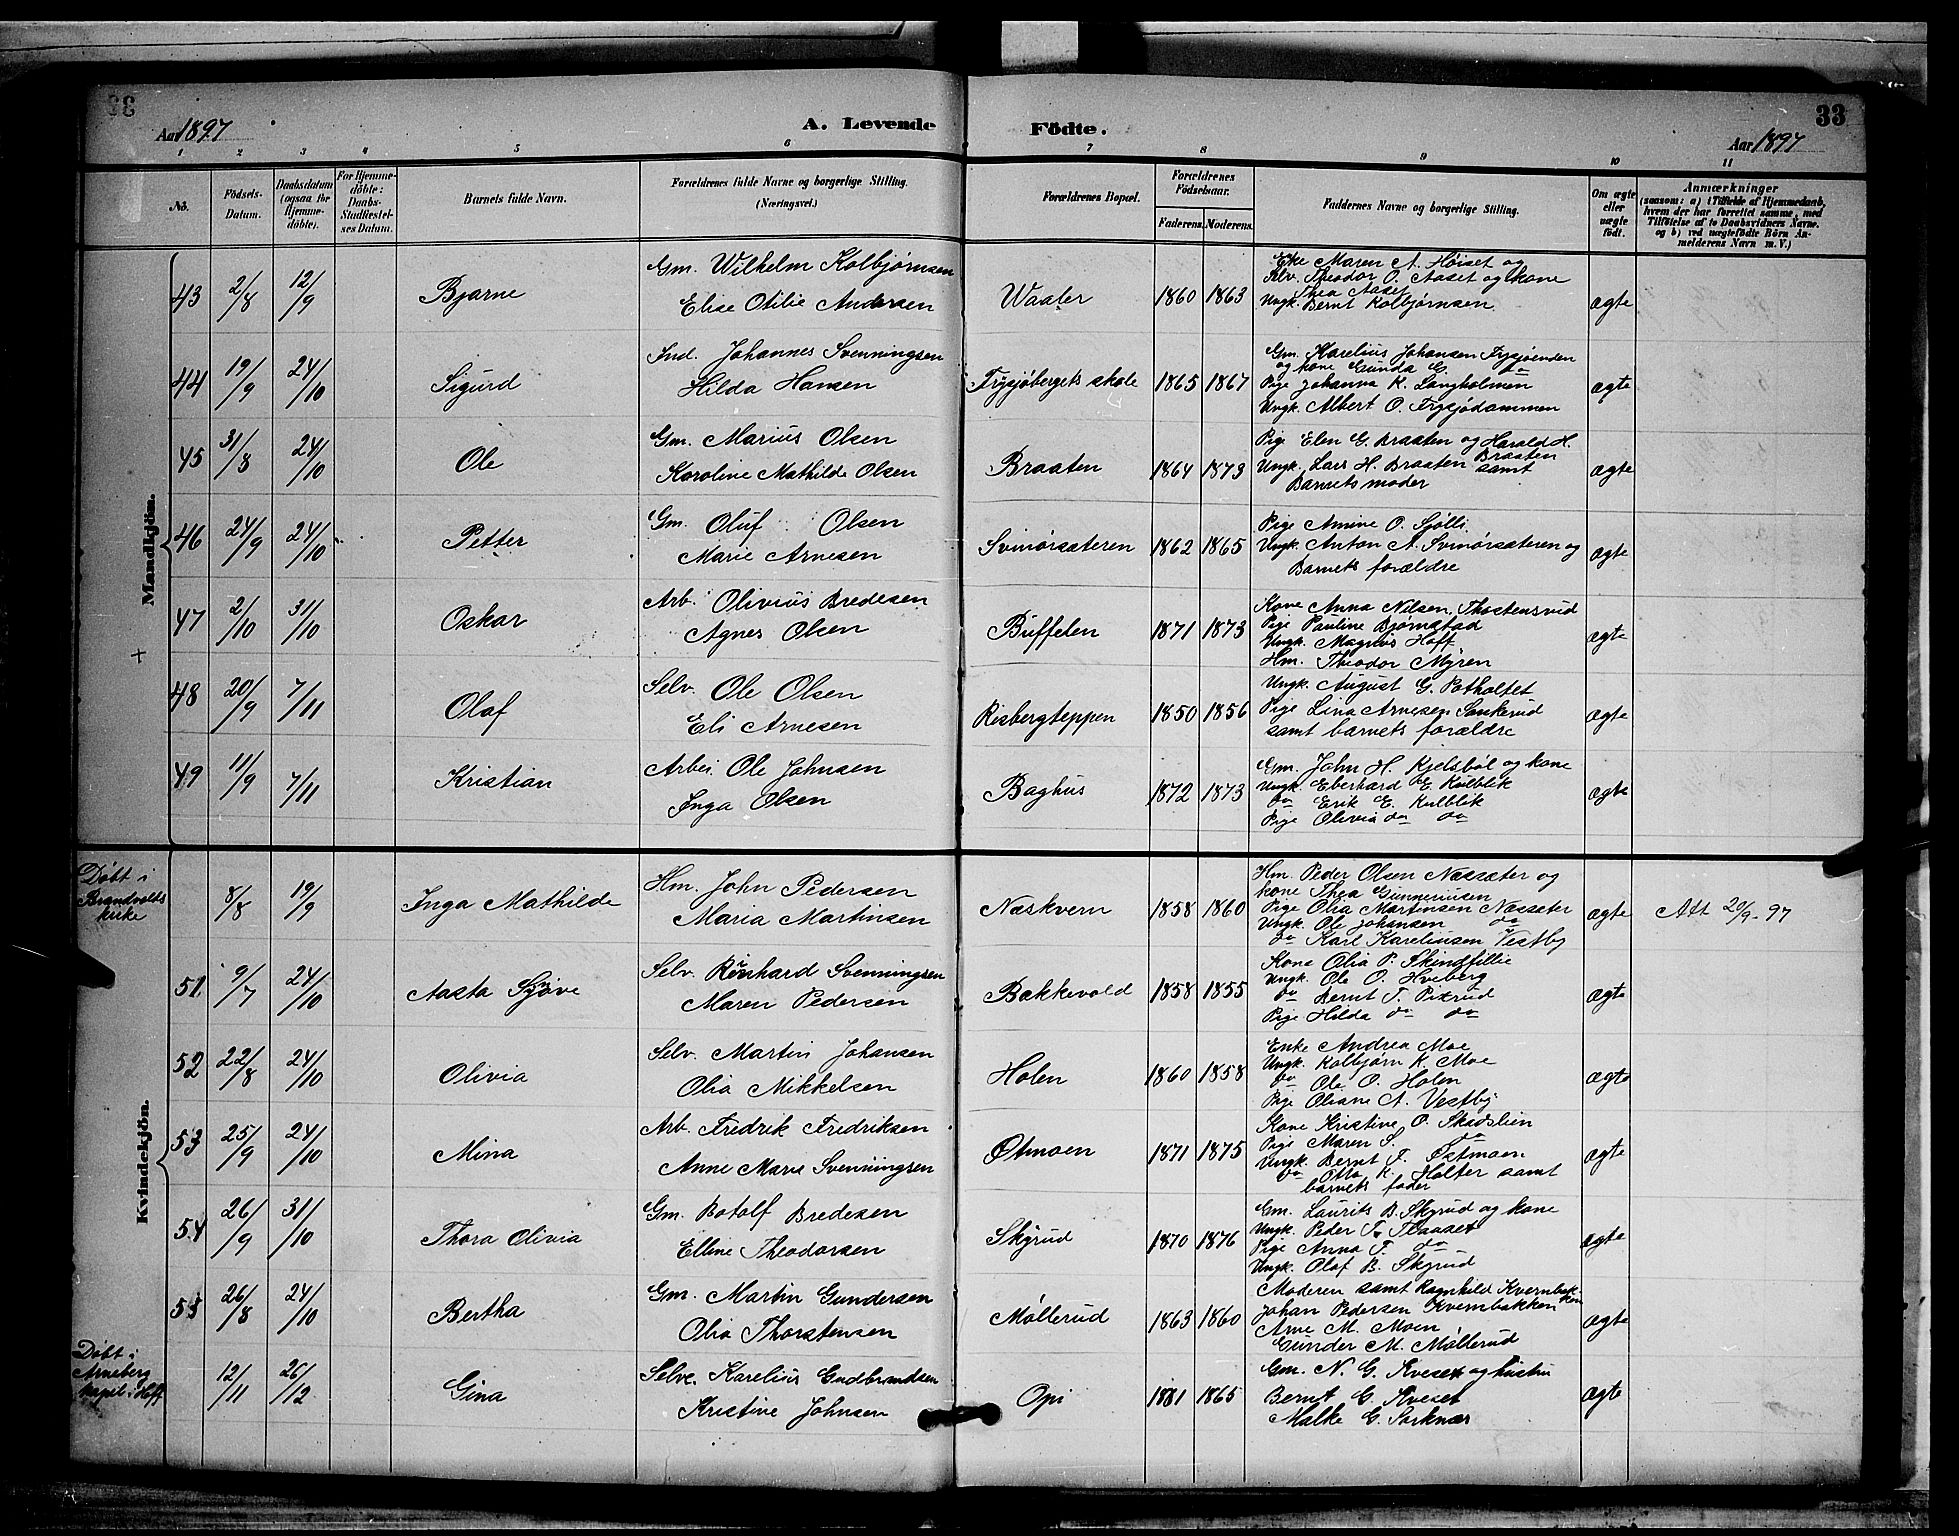 33
Aar 1897
A. Levende
Födte.
33
Aar 1897
1 2 3 4 5 6 7 8 9 10 11
No.
Födsels-
Datum.
Daabsdatum
(ogsaa for
Hjemme-
döbte).
For Hjemme-
döbte:
Daabs-
Stadfæstel-
ses Datum.
Barnets fulde Navn.
Forældrenes fulde Navne og borgerlige Stilling.
(Næringsvei.)
Forældrenes Bopæl.
Forældrenes
Födselsaar.
Faderens.
Moderens.
Faddernes Navne og borgerlige Stilling.
Om ægte
eller
uægte
födt.
Anmærkninger
(saasom: a) i Tilfælde af Hjemmedaab,
hvem der har forrettet samme, med
Tilföielse af to Daabsvidners Navne.
og b) ved uægtefödte Börn An-
melderens Navn m. V.)
Mandkjön.
43 2/8 12/9 Bjarne
Gm. Wilhelm Kolbjørnsen
Elise Otilie Andersen
Waaler 1860 1863
Eke Maren A. Høiset og
Selv. Theodor O. Aaset og kone
Thea Aaset
Ungk. Bernt Kolbjørnsen
ægte
44 19/9 24/10 Sigurd
Ind. Johannes Svenningsen
Hilda Hansen
Frysjøbergets skole 1865 1867
Gm. Karelius Johansen Frysjøenden
og kone Gunda G. do
Pige Johanna K. Langholmen
Ungk. Albert O. Frysjødammen
ægte
45 31/8 24/10 Ole
Gm. Marius Olsen
Karoline Mathilde Olsen
Braaten 1864 1873
Pige Elen G. Braaten og Harald H.
Braaten
Ungk. Lars H. Braaten samt
Barnets moder
ægte
46 24/9 24/10 Petter
Gm. Oluf Olsen
Marie Arnesen
Svinørsæteren 1862 1865
Pige Amine O. Sjølli
Ungk. Anton A. Svinørsæteren og
Barnets forældre
ægte
47 2/10 31/10 Oskar
Arb. Olivius Bredesen
Agnes Olsen
Buffelen 1871 1873
Kone Anna Nilsen, Thostensvid
Pige Pauline Bjørnstad
Ungk. Magnus Hoff
Hm. Theodor Myren
ægte
+
48 20/9 7/11 Olaf
Selv. Ole Olsen
Eli Arnesen
Risbergteppen 1850 1856
Ungk. August G. Potholtet
Pige Lina Arnesen Sankerud
samt barnets forældre
ægte
49 11/9 7/11 Kristian
Arbei. Ole Johnsen
Inga Olsen
Baghus 1872 1873
Gm. John H. Kjelsbøl og kone
Ungk. Eberhard E. Kulblik
do Erik E. Kulblik
Pige Olivia do do
ægte
Kvindekjön.
Døbt i
Brandvolds
kirke
8/8 19/9 Inga Mathilde
Hm. John Pedersen
Maria Martinsen
Næskvern 1858 1860
Hm. Peder Olsen Næssæter og
kone Thea Gunneriusen
Pige Olia Martinsen Næssæter
Ungk. Ole Johansen do
do Karl Kareliusen Vestby
ægte
Att 20/9-97
51 9/7 24/10 Aasta Sjøve
Selv. Reinhard Svenningsen
Maren Pedersen
Bakkevold 1858 1855
Kone Olia P. Skindfillie
Ungk. Ole O. Hveberg
do Bernt T. Pikrud
Pige Hilda do do
ægte
52 22/8 24/10 Olivia
Selv. Martin Johansen
Olia Mikkelsen
Holen 1860 1858
Enke Andrea Moe
Ungk. Kolbjørn K. Moe
do Ole O. Holen
Pige Oliane A. Vestby
ægte
53 25/9 24/10 Mina
Arb. Fredrik Fredriksen
Anne Marie Svenningsen
Østmoen 1871 1875
Kone Kristine O. Skadslien
Pige Maren S. do
Ungk. Bernt F. Østmoen
do Otto K. Holter samt
barnets fader
ægte
54 26/9 31/10 Thora Olivia
Gm. Botolf Bredesen
Elline Theodorsen
Skyrud 1870 1876
Gm. Laurits B. Skyrud og kone
Ungk. Peder T. Flaaset
Pige Anna T. do
Ungk. Olaf B. Skyrud
ægte
55 26/8 24/10 Bertha
Gm. Martin Gundersen
Olia Thorstensen
Møllerud 1863 1860
Moderen samt Ragnhild Kvernbakken
Johan Pedersen Kvernbakken
Arne M. Moen
Gunder M. Møllerud
ægte
Døbt i
Arneberg
kapel i Hoff
12/11 26/12 Gina
Selve. Karelius Gudbrandsen
Kristine Johnsen
Opi 1861 1865
Gm. N. G. Kveset og hustru
Bernt G. Kveset
Malke G. Sorknæs
ægte